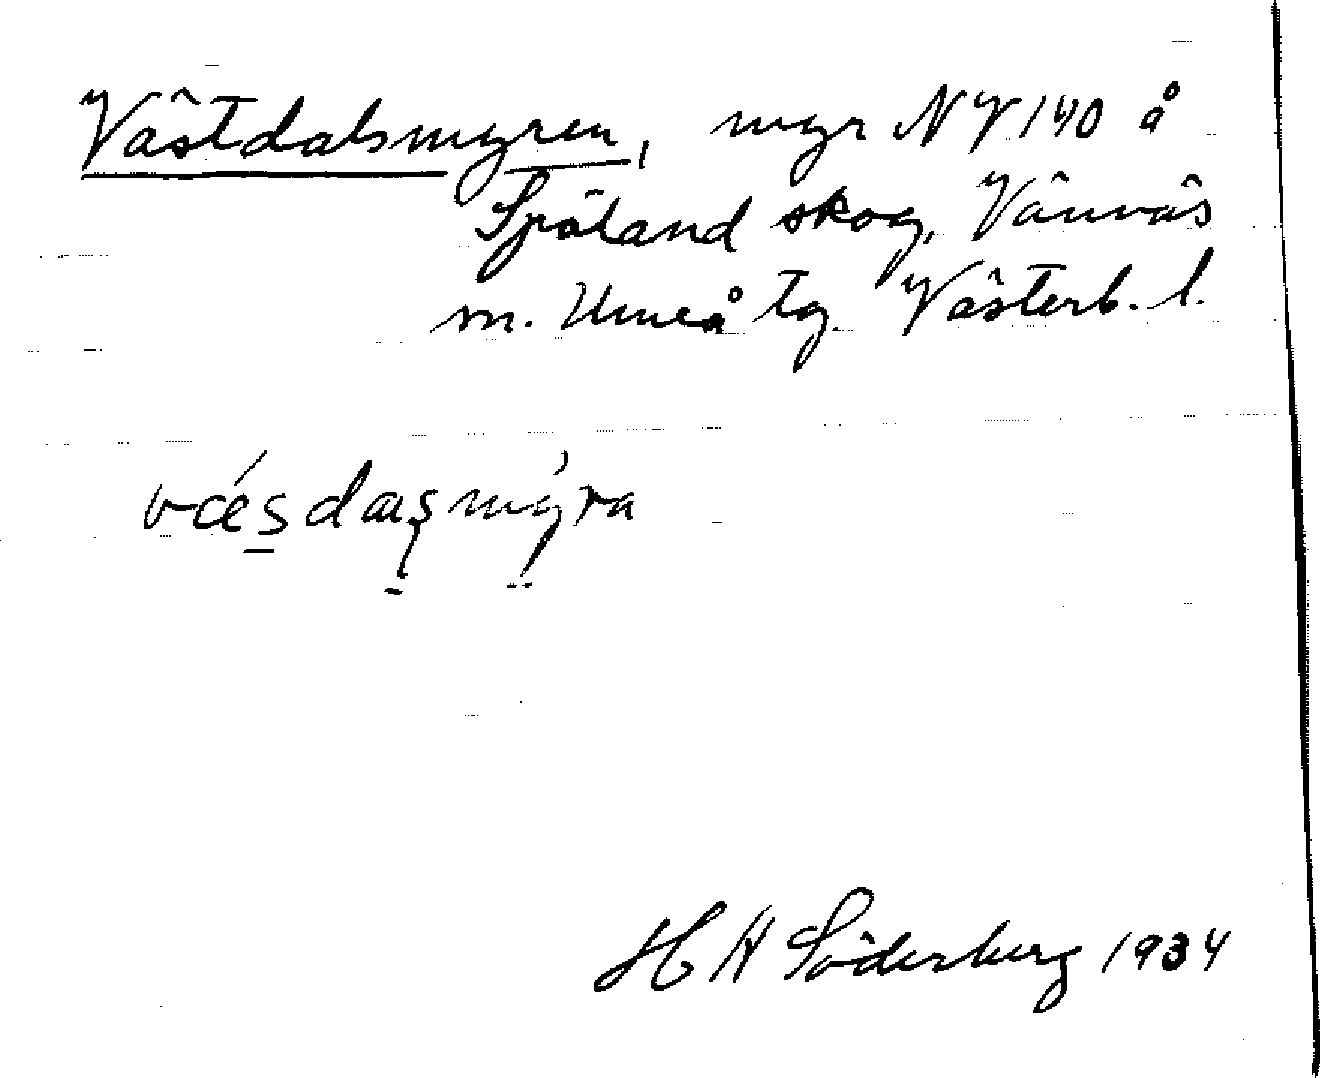 Västdalsmyren, myr NV 140 å
Spöland skog, Vännäs
m. Umeå tg. Västerb. l.
væ´s̠daʂmỳ̤ra
H A Söderberg 1934